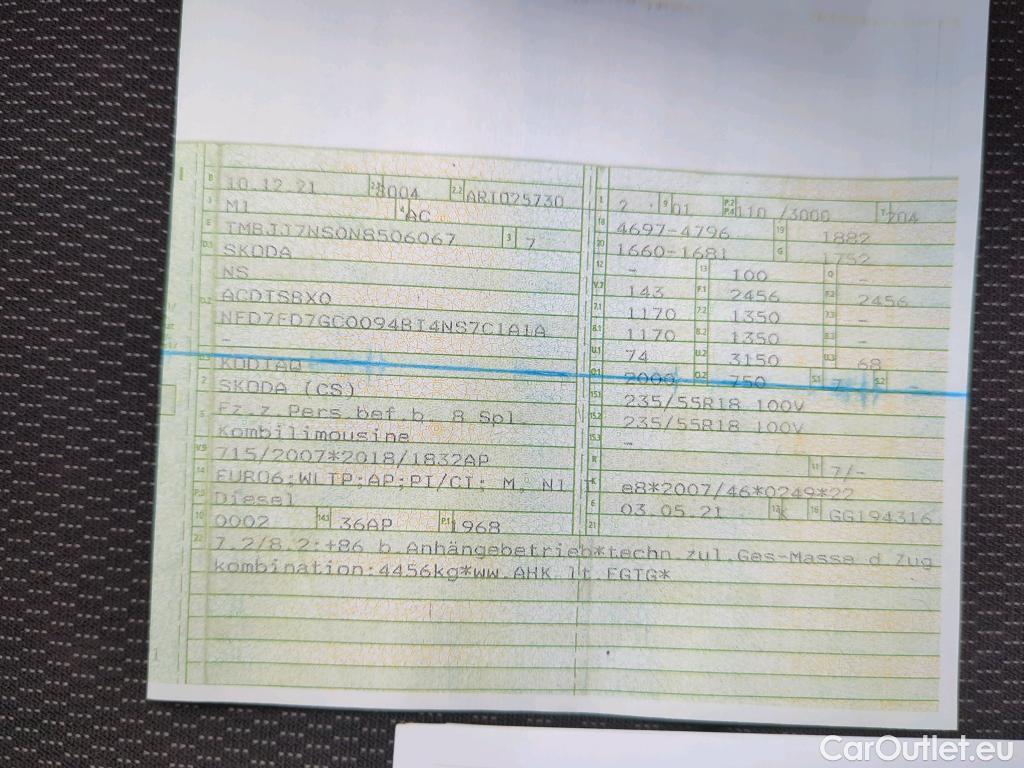 B 10.12.21 2.1 8004 2.2 ARI025730
J M1 4 AC
E TMBJJ7NS0N8506067 3 7
D.1 SKODA
NS
D.2 ACDTSBX0
NFD7FD7GC0094BT4NS7C1A1A
-
D.3 KODIAQ
2 SKODA (CS)
5 Fz.z.Pers.bef.b. 8 Spl.
Kombilimousine
V.9 715/2007*2018/1832AP
14 EURO6;WLTP;AP;PI/CI; M, N1 I
P.3 Diesel
10 0002 14.1 36AP P.1 1968
L 2 9 01 P.2 P.4 110 /3000 T 204
18 4697-4796 19 1882
20 1660-1681 G 1752
12 - 13 100 Q -
V.7 143 F.1 2456 F.2 2456
7.1 1170 7.2 1350 7.3 -
8.1 1170 8.2 1350 8.3 -
U.1 74 U.2 3150 U.3 68
O.1 2000 O.2 750 S.1 7 S.2 -
15.1 235/55R18 100V
15.2 235/55R18 100V
15.3 -
R 11 7/-
K e8*2007/46*0249*22
6 03.05.21 17 K 16 GG194316
21
22 7.2/8.2:+86 b.Anhängebetrieb*techn.zul.Ges-Masse d.Zug
kombination:4456kg*ww.AHK lt.FGTG*
1
CarOutlet.eu